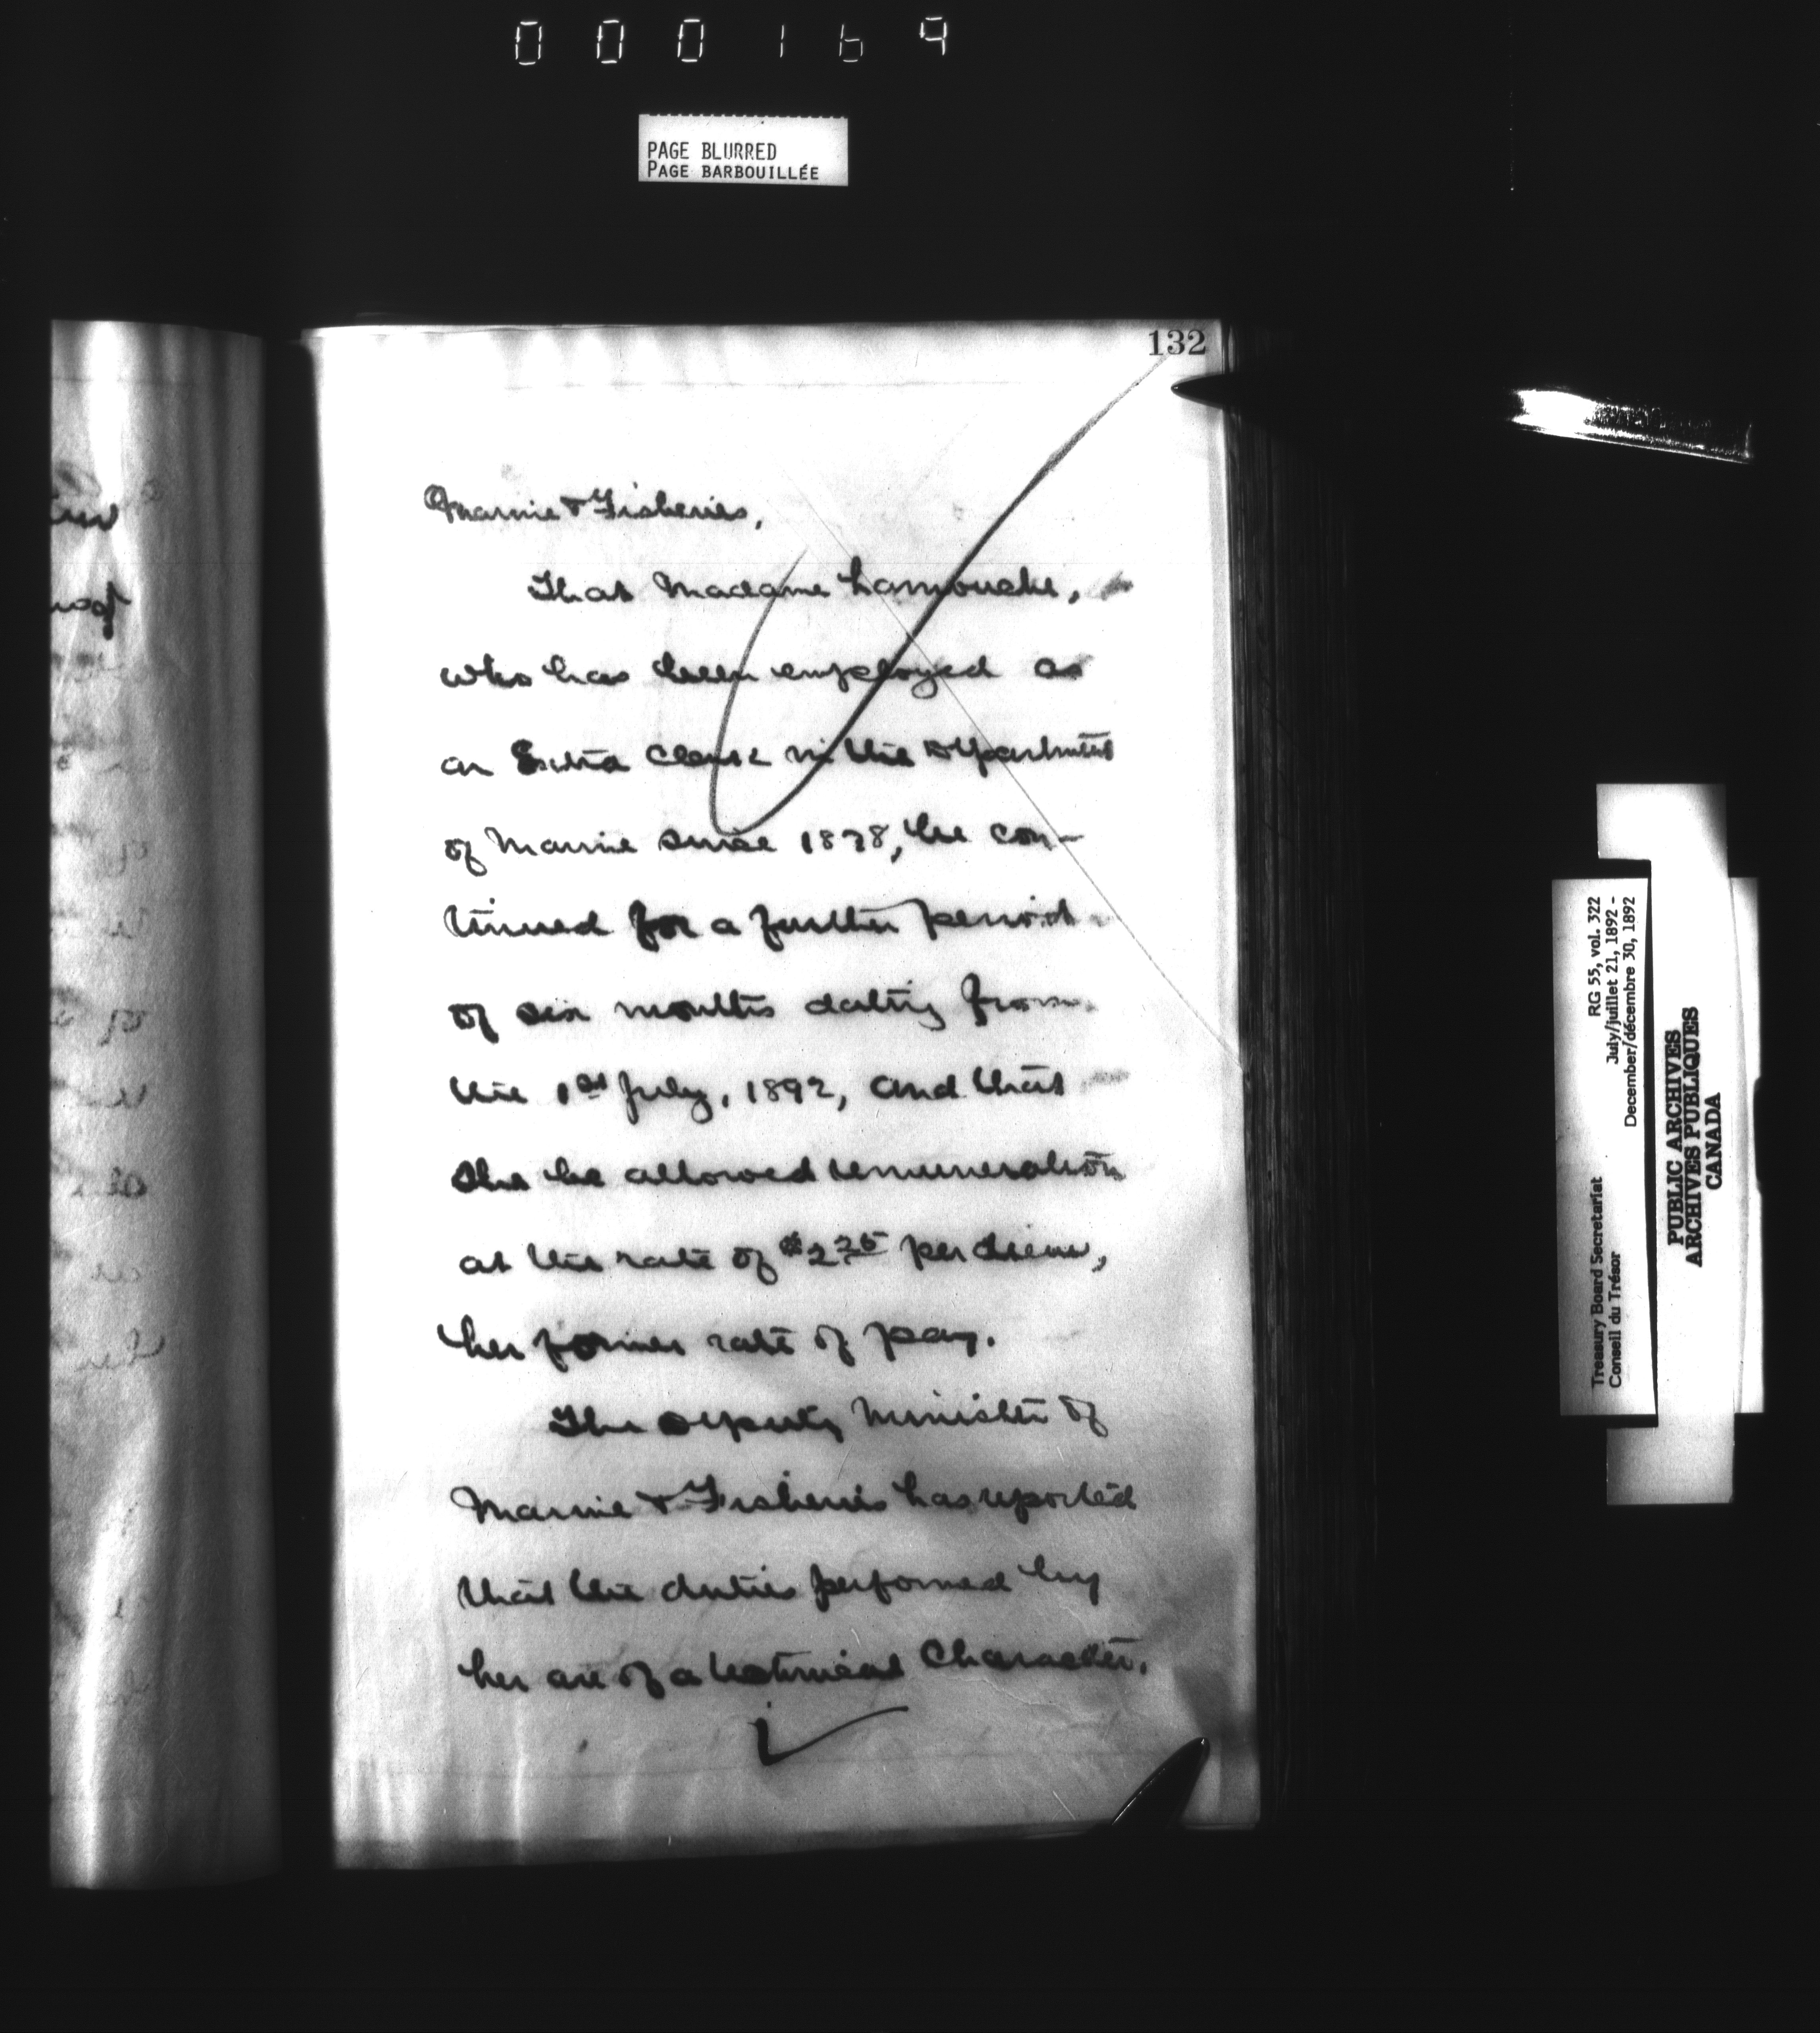 000169
PAGE BLURRED
PAGE BARBOUILLÉE
132
Marine & Fisheries,
That Madame Lamouche,
who has been employed as
an Extra Clerk in the Department
of Marine since 1878, be con-
tinued for a further period
of six months dating from
the 1st July, 1892, and that
she be allowed remuneration
at the rate of $2.25 per diem,
her former rate of pay.
The Deputy Minister of
Marine & Fisheries has reported
that the duties performed by
her are of a technical Character.
RG 55, vol. 322
July/juillet 21, 1892 -
December/décembre 30, 1892
Treasury Board Secretariat
Conseil du Trésor
PUBLIC ARCHIVES
ARCHIVES PUBLIQUES
CANADA